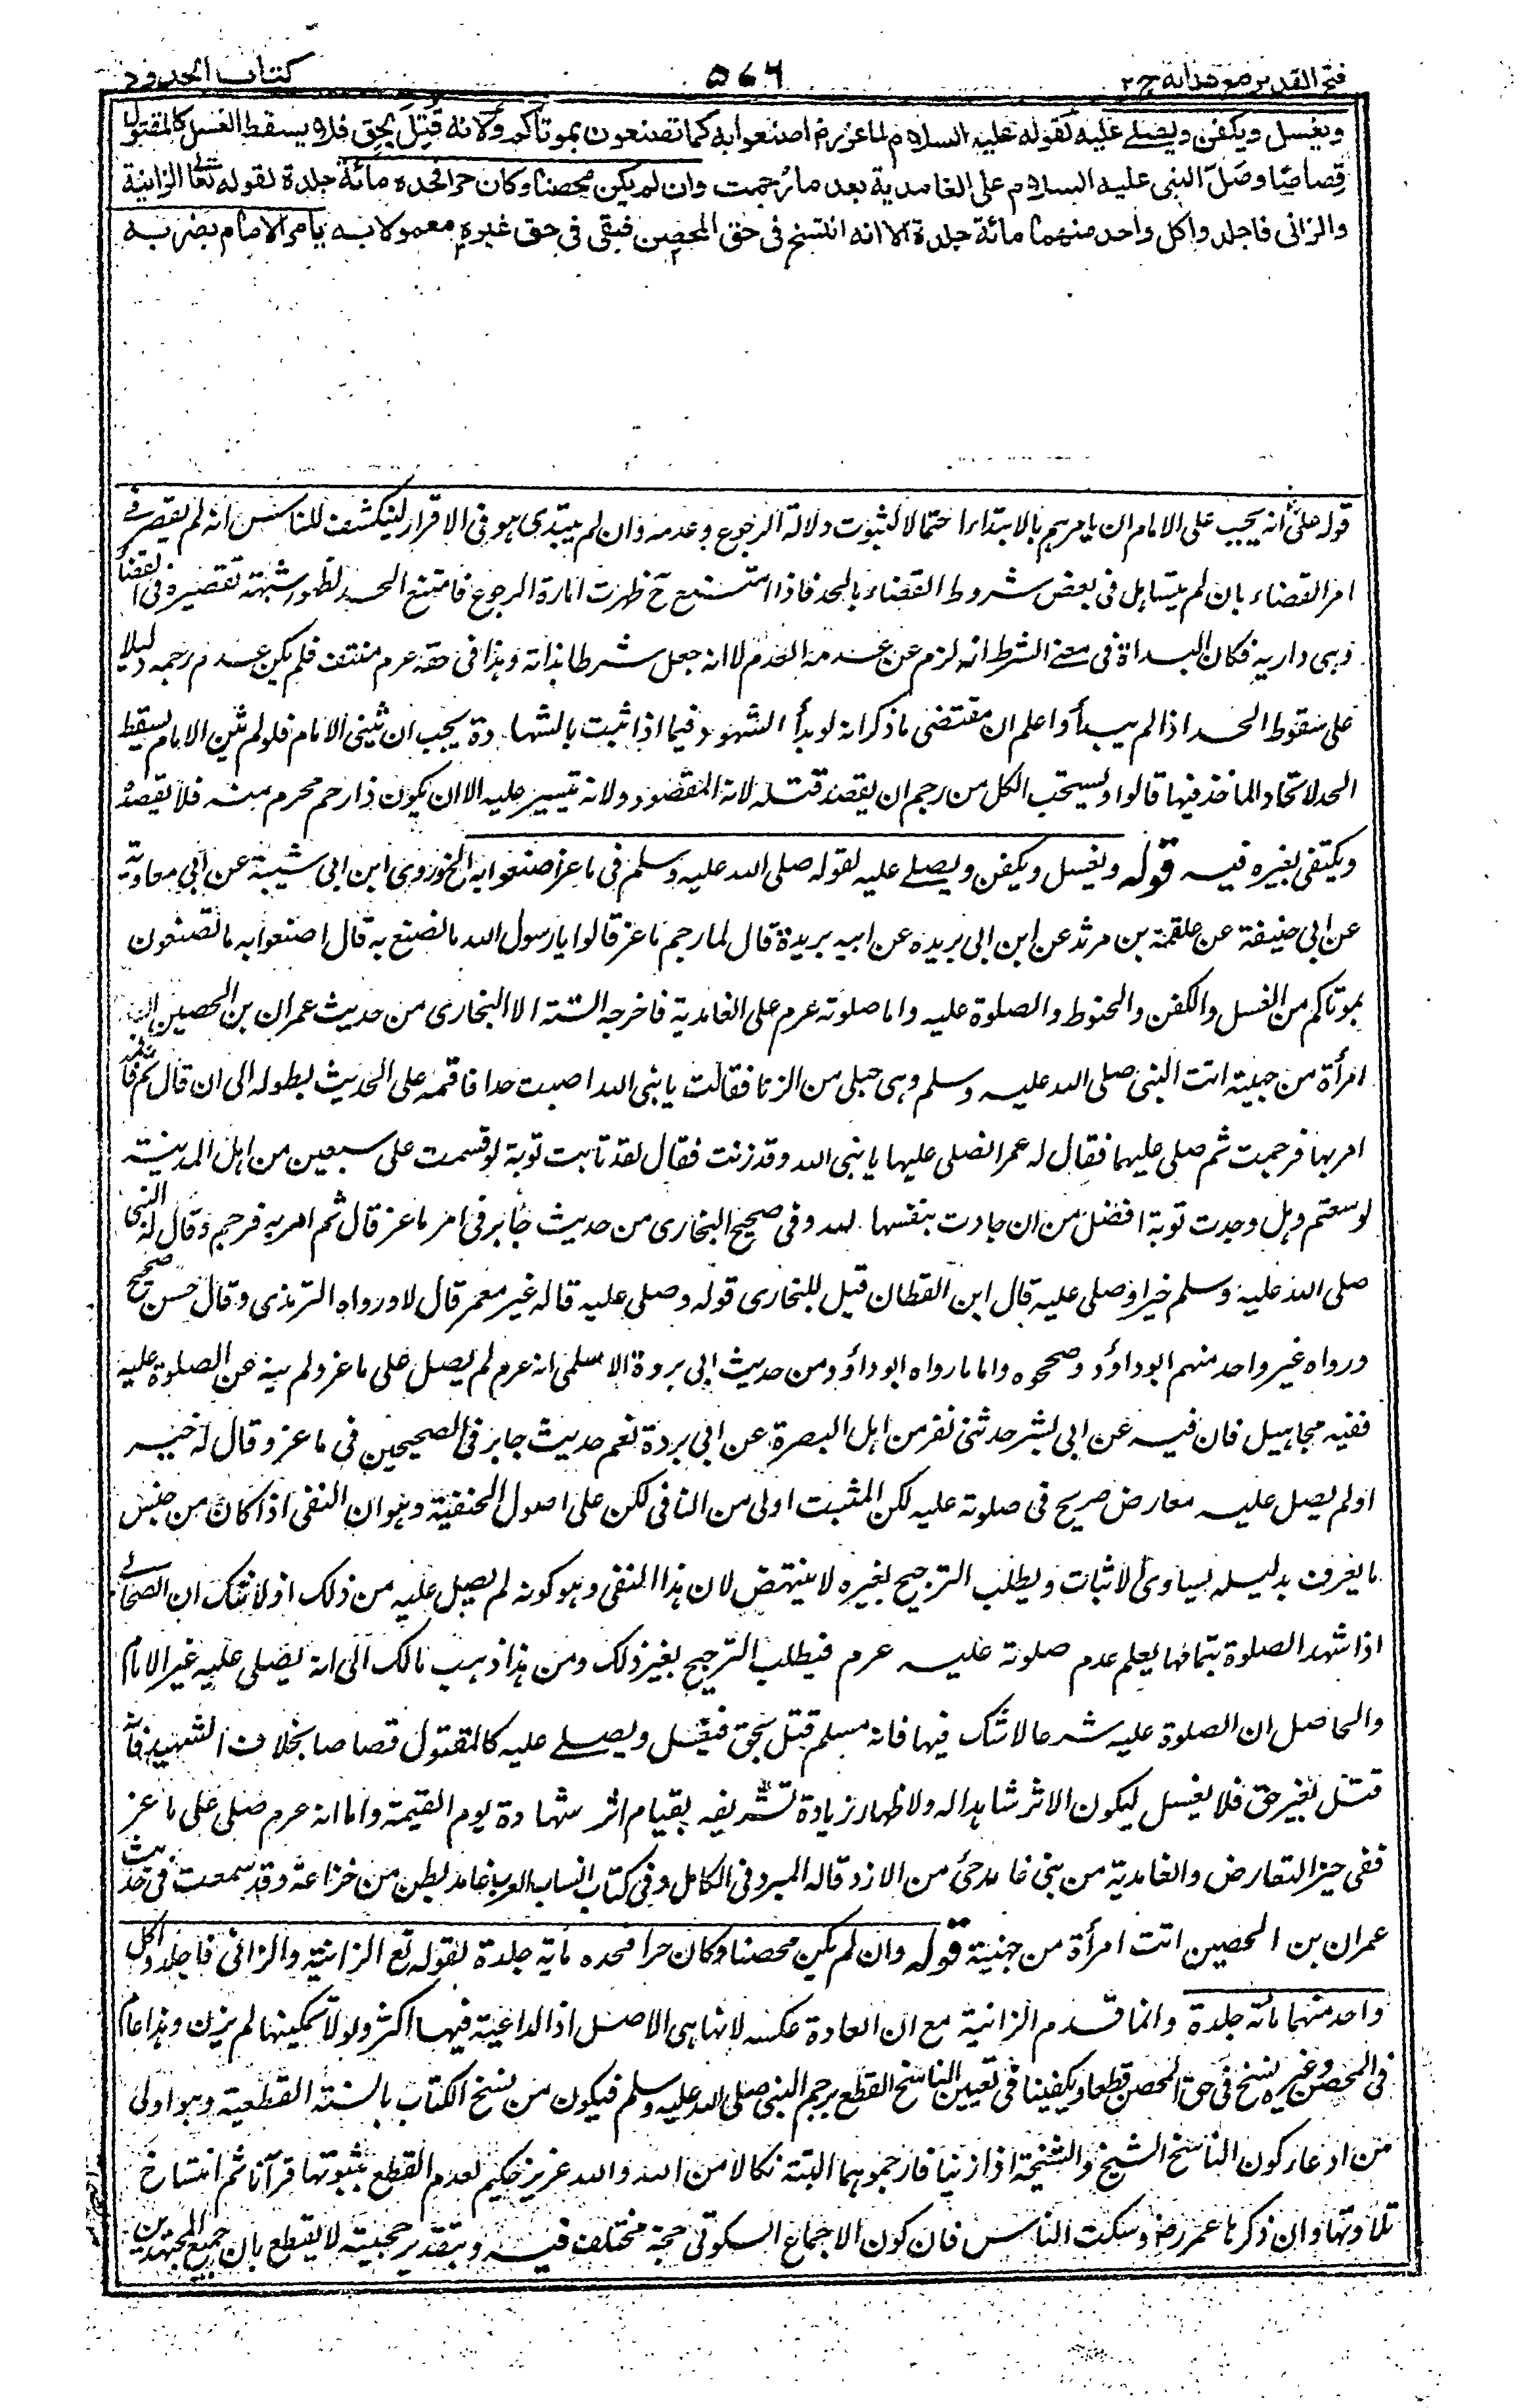 فتح القدير مع هداية ج ٢
٥٧٦
كتاب الحدود
ويغسل ويكفن ويصلى عليه لقوله عليه السلام لماعز رض اصنعوا به كما تصنعون بموتاكم ولانه قتل بحق فلا يسقط الغسل كالمقتول
قصاصا وصلى النبي عليه السلام على الغامدية بعد ما رجمت وان لم يكن محصنا وكان حرا فحده مائة جلدة لقوله تعا الزانية
والزاني فاجلدوا كل واحد منهما مائة جلدة الا انه انتسخ في حق المحصن فبقي في حق غيره معمولا به يامر الامام بضربه
قوله على انه يجب على الامام ان يامرهم بالابتداء احتمالا لثبوت دلالة الرجوع وعدمه وان لم يبتدى هو في الاقرار لينكشف للناس انه لم يقصر في
امر القضاء بان لم يتساهل في بعض شروط القضاء بالحد فاذا امتنع ح ظهرت امارة الرجوع فامتنع الحد لظهور شبهة تقصيره في القضاء
وهى دارية فكان البداة في معنى الشرط انه لزم عن عدمه العدم لا انه جعل شرطا بذاته وهذا في حقه عرم منتف فلم يكن عدم رجمه دليلا
على سقوط الحد اذا لم يبدأ واعلم ان مقتضى ما ذكر انه لو بدأ الشهود فيما اذا ثبت بالشهادة يجب ان يثنى الامام فلو لم يثن الامام يسقط
الحد لاتحاد الماخذ فيها قالوا ويستحب لكل من رجم ان يقصد قتله لانه المقصود ولانه تيسير عليه الا ان يكون ذا رحم محرم منه فلا يقصد
ويكتفى بغيره فيه قوله ويغسل ويكفن ويصلى عليه لقوله صلى الله عليه وسلم في ماعز اصنعوا به الخ وروى ابن ابى شيبة عن ابى معاوية
عن ابى حنيفة عن علقمة بن مرثد عن ابن ابى بريده عن ابيه بريدة قال لما رجم ماعز قالوا يا رسول الله ما نصنع به قال اصنعوا به ما تصنعون
بموتاكم من الغسل والكفن والحنوط والصلوة عليه واما صلوته عرم على الغامدية فاخرجه الستة الا البخارى من حديث عمران بن الحصين
امرأة من جهينة اتت النبى صلى الله عليه وسلم وهى حبلى من الزنا فقالت يا نبى الله اصبت حدا فاقمه على الحديث بطوله الى ان قال ثم
امر بها فرجمت ثم صلى عليها فقال له عمر اتصلى عليها يا نبى الله وقد زنت فقال لقد تابت توبة لو قسمت على سبعين من اهل المدينة
لوسعتهم وهل وجدت توبة افضل من ان جادت بنفسها لله وفى صحيح البخارى من حديث جابر فى امر ماعز قال ثم امر به فرجم وقال له النبى
صلى الله عليه وسلم خيرا وصلى عليه قال ابن القطان قيل للبخارى قوله وصلى عليه قاله غير معمر قال لا ورواه الترمذى وقال حسن صحيح
ورواه غير واحد منهم ابو داؤد وصححوه واما ما رواه ابو داؤد من حديث ابى بردة الاسلمى انه عرم لم يصل على ماعز ولم ينه عن الصلوة عليه
ففيه مجاهيل فان فيه عن ابى بشر حدثنى نفر من اهل البصرة عن ابى بردة نعم حديث جابر فى الصحيحين فى ماعز وقال له خير
اولم يصل عليه معارض صريح فى صلوته عليه لكن المثبت اولى من النافى لكن على اصول الحنفية وهو ان النفى اذا كان من جنس
ما يعرف بدليله يساوى الاثبات ويطلب الترجيح بغيره لا ينتهض لان هذا المنفى وهو كونه لم يصل عليه من ذلك اذ لا شك ان الصحابى
اذا شهد الصلوة بتمامها يعلم عدم صلوته عليه عرم فيطلب الترجيح بغير ذلك ومن هذا ذهب مالك الى انه يصلى عليه غير الامام
والحاصل ان الصلوة عليه شرعا لا شك فيها فانه مسلم قتل بحق فيغسل ويصلى عليه كالمقتول قصاصا بخلاف الشهيد فانه
قتل بغير حق فلا يغسل ليكون الاثر شاهدا له ولاظهار زيادة تشريفه بقيام اثر شهادة يوم القيمة واما انه عرم صلى على ماعز
ففى حيز التعارض والغامدية من بنى غامد حى من الازد قاله المبرد فى الكامل وفى كتاب انساب العرب غامد بطن من خزاعة وقد سمعت فى حديث
عمران بن الحصين اتت امرأة من جهنية قوله وان لم يكن محصنا وكان حرا فحده مائة جلدة لقوله تع الزانية والزانى فاجلدوا كل
واحد منهما مائة جلدة وانما قدم الزانية مع ان العادة عكسه لانها هى الاصل اذ الداعية فيها اكثر ولولا تمكينها لم يزن وهذا عام
فى المحصن وغيره نسخ فى حق المحصن قطعا ويكفينا فى تعيين الناسخ القطع برجم النبى صلى الله عليه وسلم فيكون من نسخ الكتاب بالسنة القطعية وهو اولى
من ادعاء كون الناسخ الشيخ والشيخة اذا زنيا فارجموهما البتة نكالا من الله والله عزيز حكيم لعدم القطع بثبوتها قرآنا ثم انتساخ
تلاوتها وان ذكرها عمر رض وسكت الناس فان كون الاجماع السكوتى حجة مختلف فيه وبتقدير حجيته لا يقطع بان جميع المجتهدين